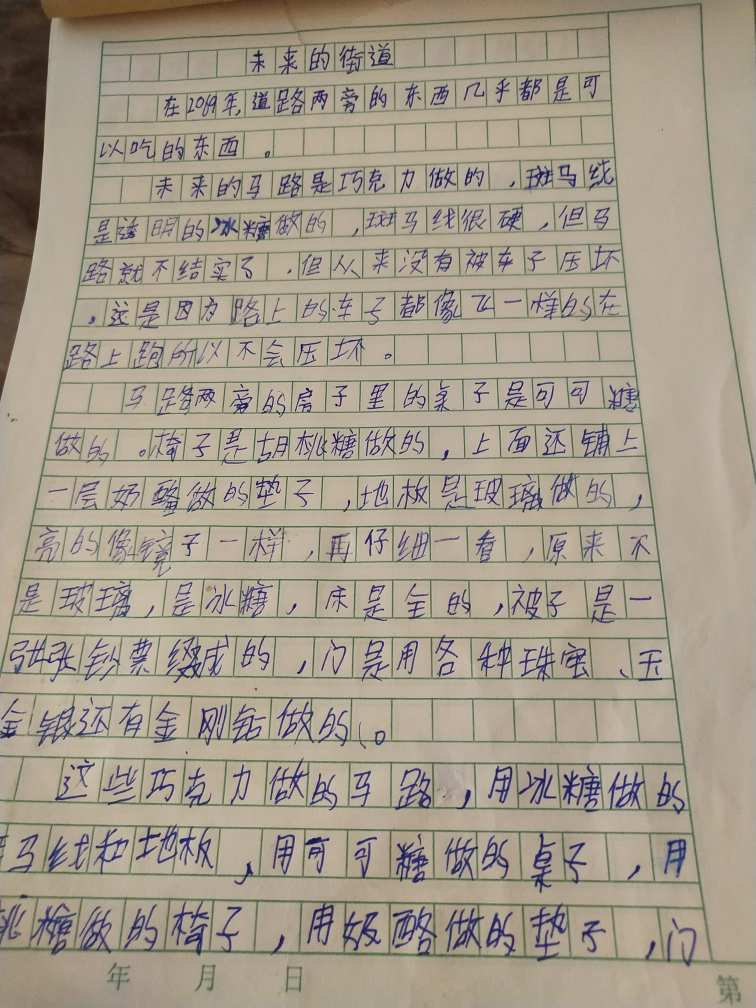 未来的街道
在2069年,道路两旁的东西几乎都是可
以吃的东西。
未来的马路是巧克力做的,斑马线
是透明的冰糖做的,斑马线很硬,但马
路就不结实了,但从来没有被车子压坏
。这是因为路上的车子都像飞一样的在
路上跑所以不会压坏。
马路两旁的房子里的桌子是可可糖
做的。椅子是胡桃糖做的,上面还铺上
一层奶酪做的垫子,地板是玻璃做的,
亮的像镜子一样,再仔细一看,原来不
是玻璃,是冰糖,床是金的,被子是一
张张钞票缀成的,门是用各种珠宝、玉
金银还有金刚钻做的。
这些巧克力做的马路,用冰糖做的
马线和地板,用可可糖做的桌子,用
桃糖做的椅子,用奶酪做的垫子,门
年 月 日
第